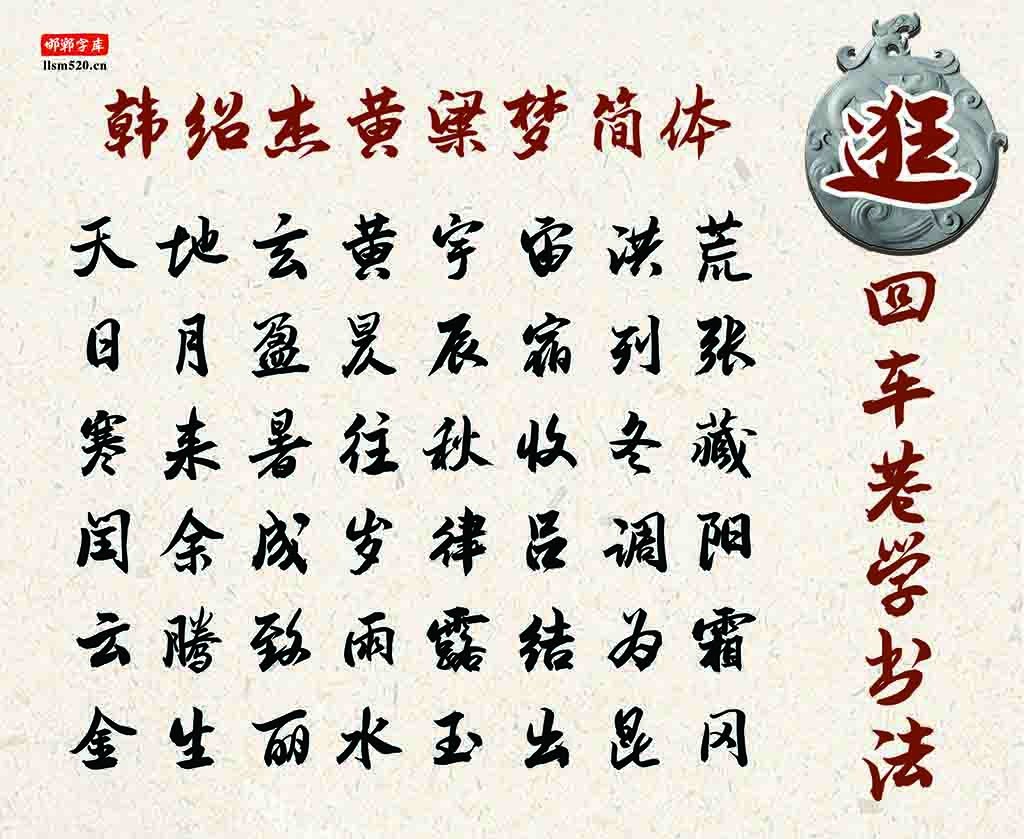 邯郸字库
llsm520.cn
韩绍杰黄粱梦简体
天地玄黄宇宙洪荒
日月盈昃辰宿列张
寒来暑往秋收冬藏
闰余成岁律吕调阳
云腾致雨露结为霜
金生丽水玉出昆冈
逛
回车巷学书法